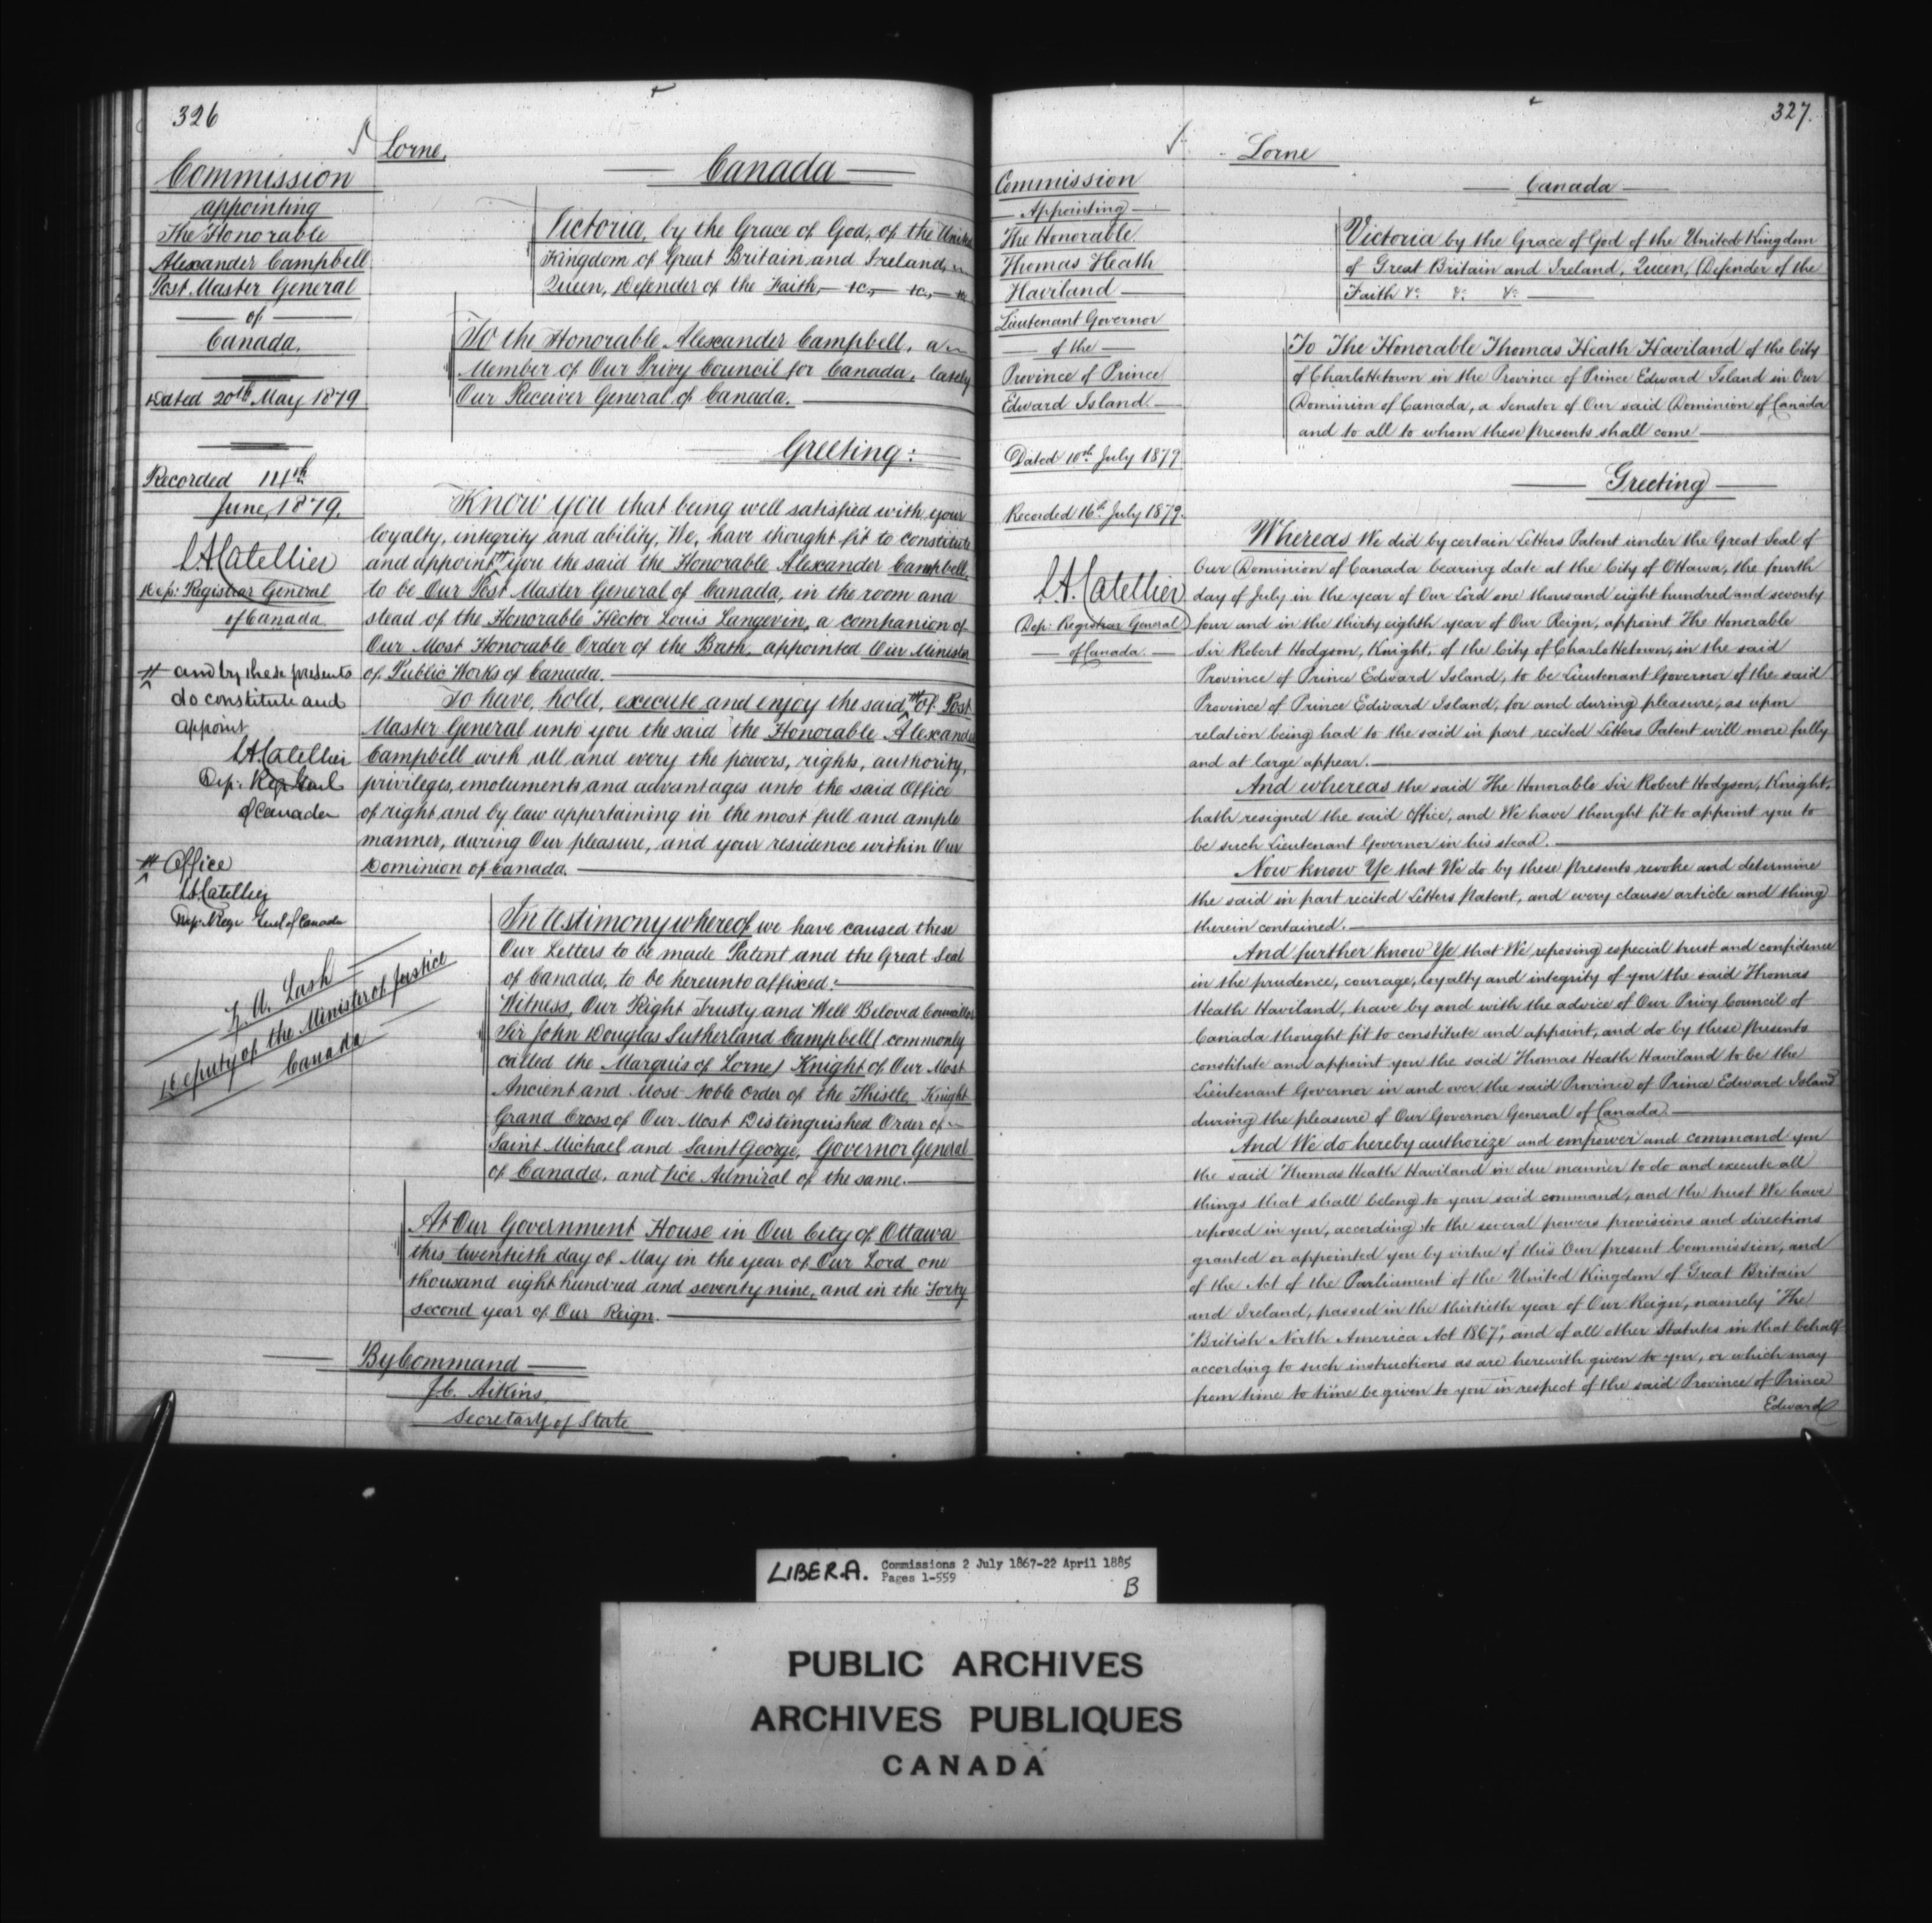 326
Commission
appointing
The Honorable
Alexander Campbell
Post Master General
of
Canada.
Dated 20th May 1879
Recorded 14th
June, 1879.
L.A. Catellier
Dep: Registrar General
of Canada
# and by these presents
do constitute and
appoint
L.A. Catellier
Dep: Reg Genl
of Canada
# Office
L.A. Catellier
Dep: Regr Genl of Canada
Z. A. Lash
Deputy of the Minister of Justice
Canada
Lorne,
Canada
Victoria, by the Grace of God, of the United
Kingdom of Great Britain and Ireland,
Queen, Defender of the Faith, &c., &c., &c
To the Honorable Alexander Campbell, a
Member of Our Privy Council for Canada, lately
Our Receiver General of Canada.
Greeting:
Know you that being well satisfied with your
loyalty, integrity and ability, We, have thought fit to constitute
and appoint # you the said the Honorable Alexander Campbell,
to be Our Post Master General of Canada, in the room and
stead of the Honorable Hector Louis Langevin, a companion of
Our Most Honorable Order of the Bath, appointed Our Minister
of Public Works of Canada.
To have, hold, execute and enjoy the said # of Post
Master General unto you the said the Honorable Alexander
Campbell with all and every the powers, rights, authority,
privileges, emoluments and advantages unto the said Office
of right and by law appertaining in the most full and ample
manner, during Our pleasure, and your residence within Our
Dominion of Canada.
In testimony whereof we have caused these
Our Letters to be made Patent and the Great Seal
of Canada, to be hereunto affixed:
Witness, Our Right Trusty and Well Beloved Councillor
Sir John Douglas Sutherland Campbell (commonly
called the Marquis of Lorne) Knight of Our Most
Ancient and Most Noble Order of the Thistle, Knight
Grand Cross of Our Most Distinguished Order of
Saint Michael and Saint George, Governor General
of Canada, and Vice Admiral of the same.
At Our Government House in Our City of Ottawa
this twentieth day of May in the year of Our Lord one
thousand eight hundred and seventy nine, and in the Forty
second year of Our Reign.
By Command
J.C. Aikins,
Secretary of State
327.
Commission
Appointing
The Honorable
Thomas Heath
Haviland
Lieutenant Governor
of the
Province of Prince
Edward Island
Dated 10th July 1879
Recorded 16th July 1879.
L.A. Catellier
Dep: Registrar General
of Canada
Lorne
Canada
Victoria by the Grace of God of the United Kingdom
of Great Britain and Ireland, Queen, Defender of the
Faith &c &c &c
To The Honorable Thomas Heath Haviland of the City
of Charlottetown in the Province of Prince Edward Island in Our
Dominion of Canada, a Senator of Our said Dominion of Canada
and to all to whom these Presents shall come
Greeting
Whereas We did by certain Letters Patent under the Great Seal of
Our Dominion of Canada bearing date at the City of Ottawa, the fourth
day of July in the year of Our Lord one thousand eight hundred and seventy
four and in the thirty eighth year of Our Reign, appoint The Honorable
Sir Robert Hodgson, Knight, of the City of Charlottetown, in the said
Province of Prince Edward Island, to be Lieutenant Governor of the said
Province of Prince Edward Island, for and during pleasure, as upon
relation being had to the said in part recited Letters Patent will more fully
and at large appear.
And whereas the said The Honorable Sir Robert Hodgson, Knight,
hath resigned the said Office, and We have thought fit to appoint you to
be such Lieutenant Governor in his stead.
Now know Ye that We do by these Presents revoke and determine
the said in part recited Letters Patent, and every clause article and thing
therein contained.
And further know Ye that We reposing especial trust and confidence
in the prudence, courage, loyalty and integrity of you the said Thomas
Heath Haviland, have by and with the advice of Our Privy Council of
Canada thought fit to constitute and appoint, and do by these Presents
constitute and appoint you the said Thomas Heath Haviland to be the
Lieutenant Governor in and over the said Province of Prince Edward Island
during the pleasure of Our Governor General of Canada
And We do hereby authorize and empower and command you
the said Thomas Heath Haviland in due manner to do and execute all
things that shall belong to your said command, and the trust We have
reposed in you, according to the several powers provisions and directions
granted or appointed you by virtue of this Our present Commission, and
of the Act of the Parliament of the United Kingdom of Great Britain
and Ireland, passed in the thirtieth year of Our Reign, namely "The
"British North America Act 1867", and of all other Statutes in that behalf
according to such instructions as are herewith given to you, or which may
from time to time be given to you in respect of the said Province of Prince
Edward
LIBER.A. Commissions 2 July 1867-22 April 1885
Pages 1-559
B
PUBLIC ARCHIVES
ARCHIVES PUBLIQUES
CANADA